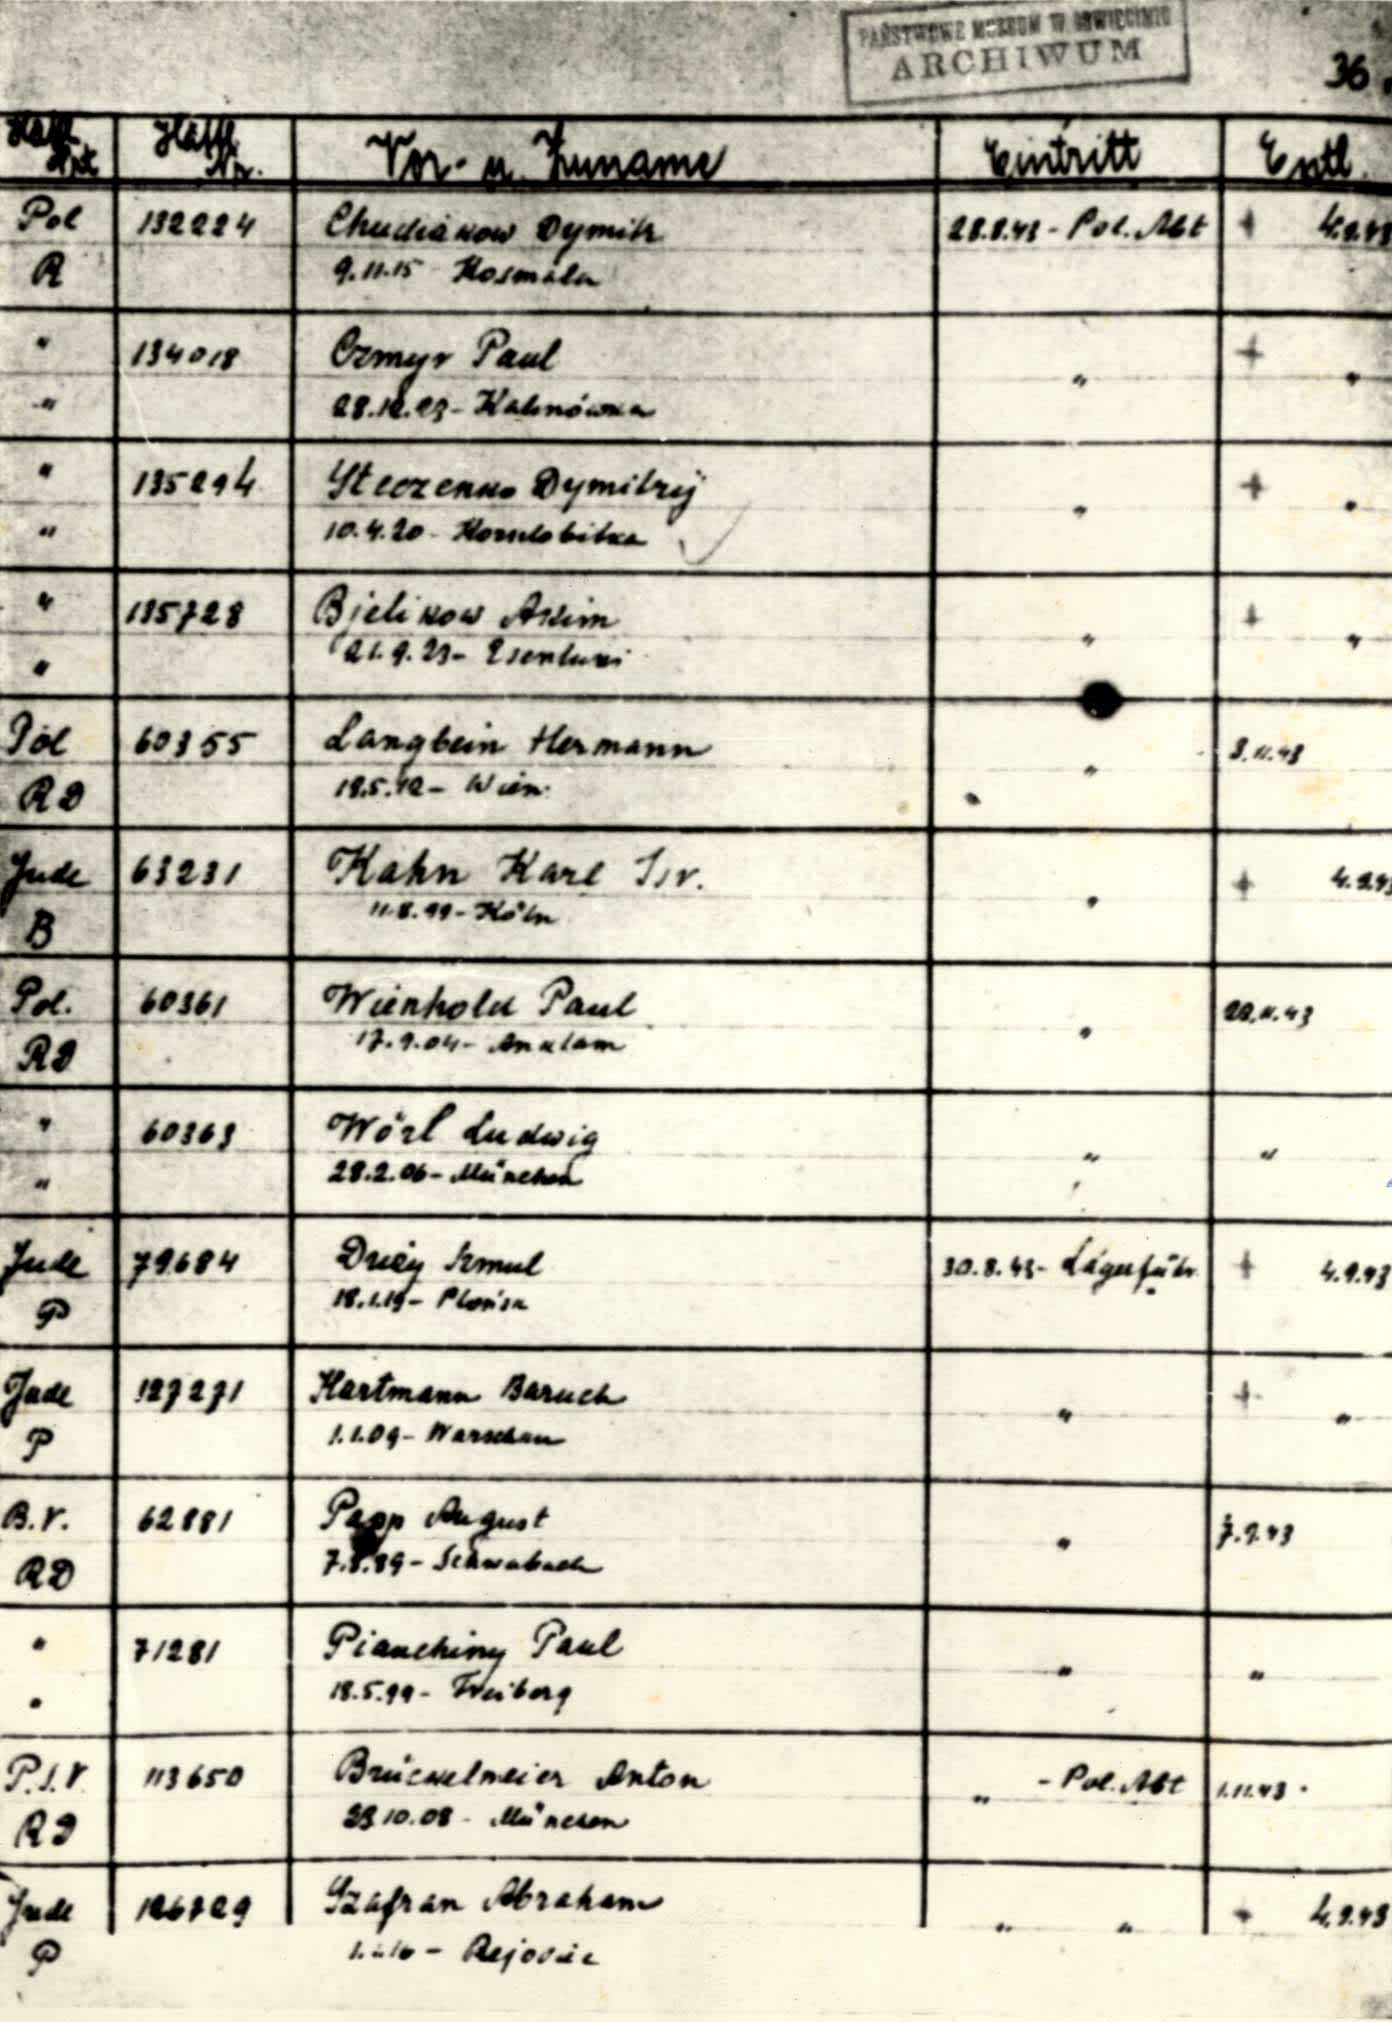 PAŃSTWOWE MUZEUM W OŚWIĘCIMIU
ARCHIWUM
36.
Häftl. Art Häftl. Nr. Vor- u. Zuname Eintritt Entl.
Pol 132224 Chudiakow Dymitr 28.8.43 - Pol. Abt + 4.9.43
R 9.11.15 Kosmala
" 134018 Czmyr Paul " + "
" 28.12.23 - Kalinówka
" 135294 Steczenko Dymitrij " + "
" 10.4.20 -
" 135728 Bjelikow Akim " + "
" 21.9.23 - Esentuki
Pol 60355 Langbein Hermann " 3.11.43
RD 18.5.12 - Wien
Jude 63231 Kahn Karl Isr. " + 4.9.43
B 11.8.99 - Köln
Pol. 60361 Wienhold Paul " 22.11.43
RD 17.9.04 - Anklam
" 60363 Wörl Ludwig " "
" 28.2.06 - München
Jude 79684 Szmul 30.8.43 - Lagerführ. + 4.9.43
P 18.1.19 - Płońsk
Jude 127271 Hartmann Baruch " + "
P 1.1.09 - Warschau
B.V. 62881 Papp August " 7.9.43
RD 7.8.89 - Schwabach
" 71281 Pianchiny Paul " "
" 18.5.99 - Freiberg
P.S.V. 113650 Brückelmeier Anton " - Pol. Abt 1.11.43
RD 23.10.08 - München
Jude 126729 Szafran Abraham " " + 4.9.43
P - Rejowiec